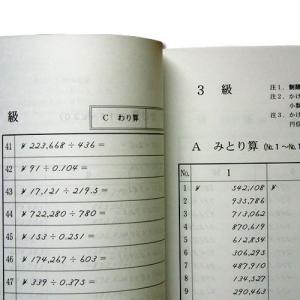 級
C わり算
41 ¥ 223,668 ÷ 436 =
42 ¥ 91 ÷ 0.104 =
43 ¥ 17,121 ÷ 219.5 =
44 ¥ 722,280 ÷ 780 =
45 ¥ 153 ÷ 0.251 =
46 ¥ 174,267 ÷ 603 =
47 ¥ 339 ÷ 0.375 =
3 級
注1．制限
注2．かけ
小数
注3．かけ
円位
A みとり算 (No.1～No.1
No. 1
1 ¥ 542,108 ¥
2 935,786
3 613,042
4 870,619
5 612,854
6 306,295
7 487,910
8 134,527
9 290,463